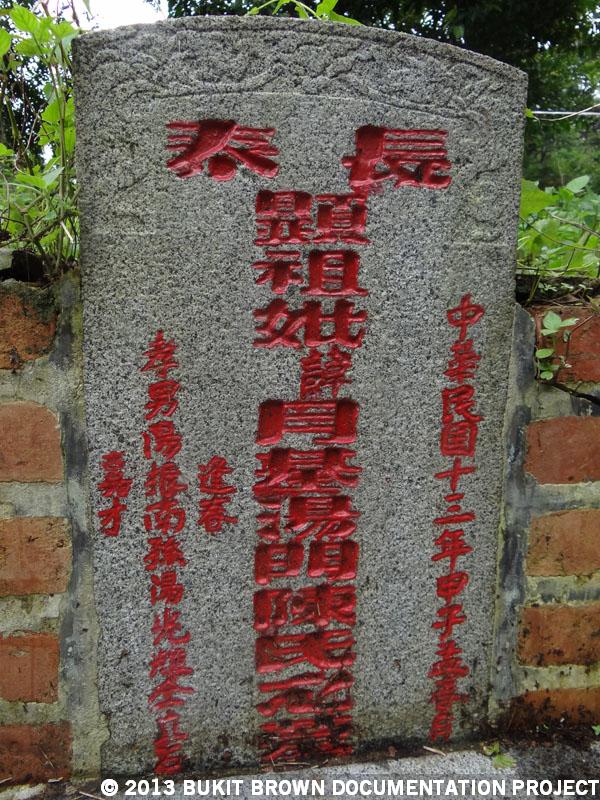 長泰
中華民國十三年甲子孟月
顯祖妣諱月湯門陳氏墓
逢春
孝男湯振南孫湯兆仝立石
嘉才
© 2013 BUKIT BROWN DOCUMENTATION PROJECT